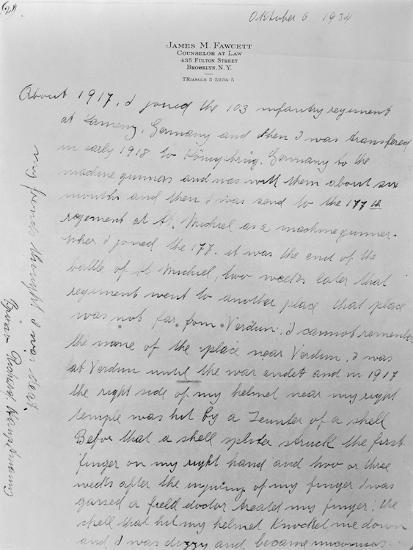 Oktober 6 1934
JAMES M. FAWCETT
COUNSELOR AT LAW
435 FULTON STREET
BROOKLYN, N.Y.
TRIANGLE 5
About 1917, I joined the 103 infantry regement
at Camenz, Germany and then I was transfered
in early 1918 to Königsbrück, Germany to the
machine gunners and was with them about six
months and then I was send to the 177th
regement at St. Michiel as a machine gunner.
when I joined the 177. it was the end of the
battle of St Michiel, two weeks later that
regiment went to another place that place
was not far from Verdun. I cannot remember
the name of the place near Verdun. I was
at Verdun until the war endet and in 1917
the right side of my helmet near my right
temple was hit by a of a shell
Befor that a shell splider struck the first
finger on my right hand and two or three
weeks after the of my finger I was
gassed a field doctor treated my finger. the
shell that hit my helmet Knocked me down
and I was dizzy and became
my friends thought I was dead.
Bruno Richard Hauptmann